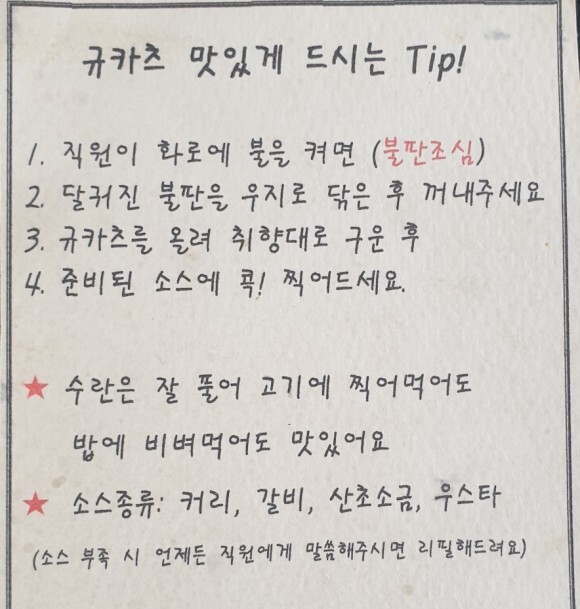 규카츠 맛있게 드시는 Tip!
1. 직원이 화로에 불을 켜면 (불판조심)
2. 달궈진 불판을 우지로 닦은 후 꺼내주세요
3. 규카츠를 올려 취향대로 구운 후
4. 준비된 소스에 콕! 찍어드세요.
★ 수란은 잘 풀어 고기에 찍어먹어도
밥에 비벼먹어도 맛있어요
★ 소스종류: 커리, 갈비, 산초소금, 우스타
(소스 부족 시 언제든 직원에게 말씀해주시면 리필해드려요)